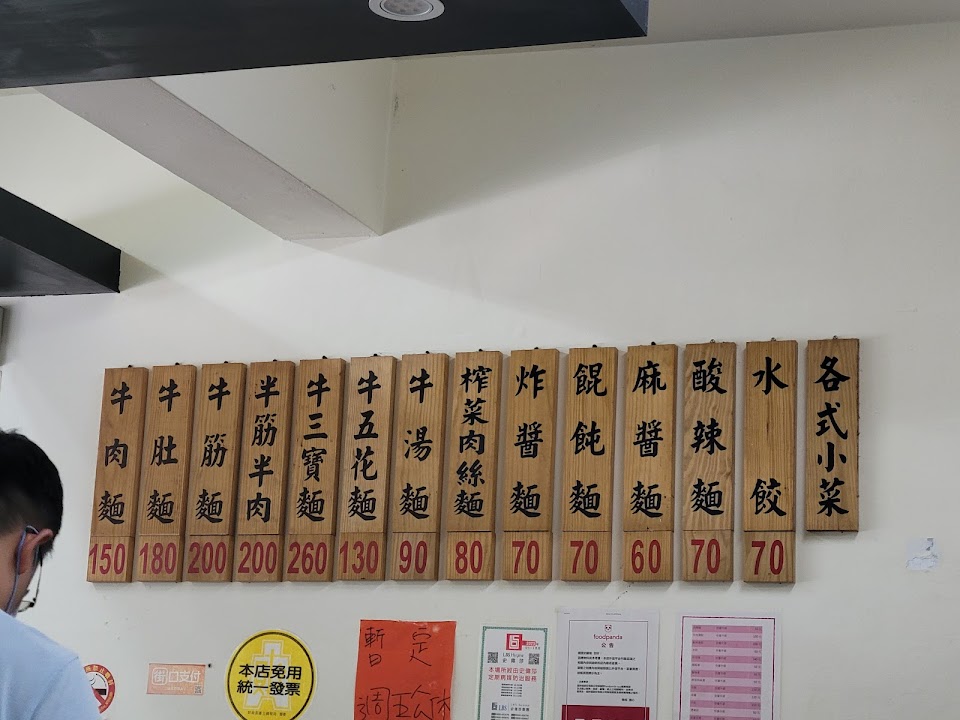 牛肉麵
150
牛肚麵
180
牛筋麵
200
半筋半肉
200
牛三寶麵
260
牛五花麵
130
牛湯麵
90
榨菜肉絲麵
80
炸醬麵
70
餛飩麵
70
麻醬麵
60
酸辣麵
70
水餃
70
各式小菜
街口支付
本店免用
統一發票
暫定
週五公休
foodpanda
公告